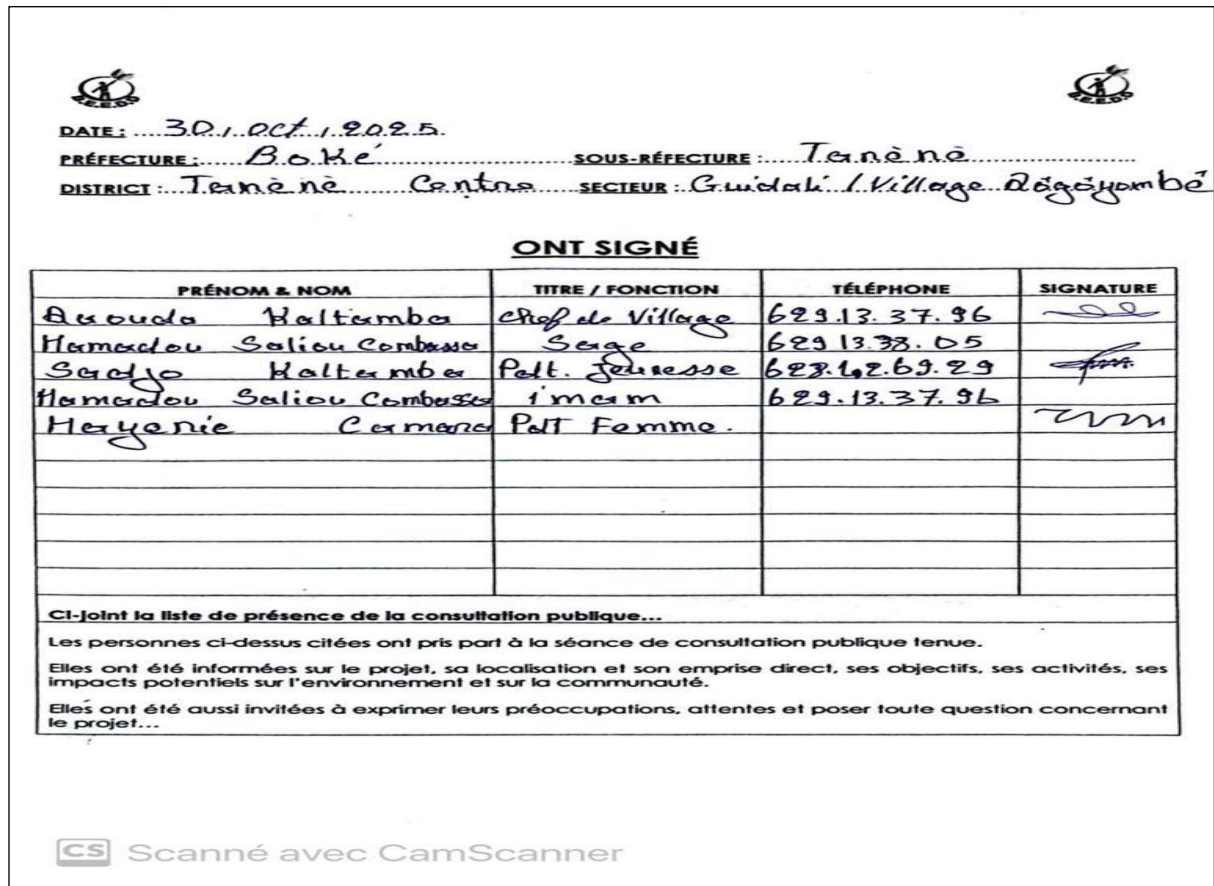 DATE : 30, Oct, 2025.
PRÉFECTURE : Boké SOUS-RÉFECTURE : Tanènè
DISTRICT : Tanènè Centre SECTEUR : Guidali / Village
ONT SIGNÉ
PRÉNOM & NOM TITRE / FONCTION TÉLÉPHONE SIGNATURE
Kaltamba chef de Village 629.13.37.96
Mamadou Saliou Combassa Sage 629 13.38.05
Sadjo Kaltamba Pdt. Jeunesse 69.29
Mamadou Saliou Combassa imam 629.13.37.96
Camara Pdt Femme.
Ci-joint la liste de présence de la consultation publique...
Les personnes ci-dessus citées ont pris part à la séance de consultation publique tenue.
Elles ont été informées sur le projet, sa localisation et son emprise direct, ses objectifs, ses activités, ses
impacts potentiels sur l'environnement et sur la communauté.
Elles ont été aussi invitées à exprimer leurs préoccupations, attentes et poser toute question concernant
le projet...
CS Scanné avec CamScanner